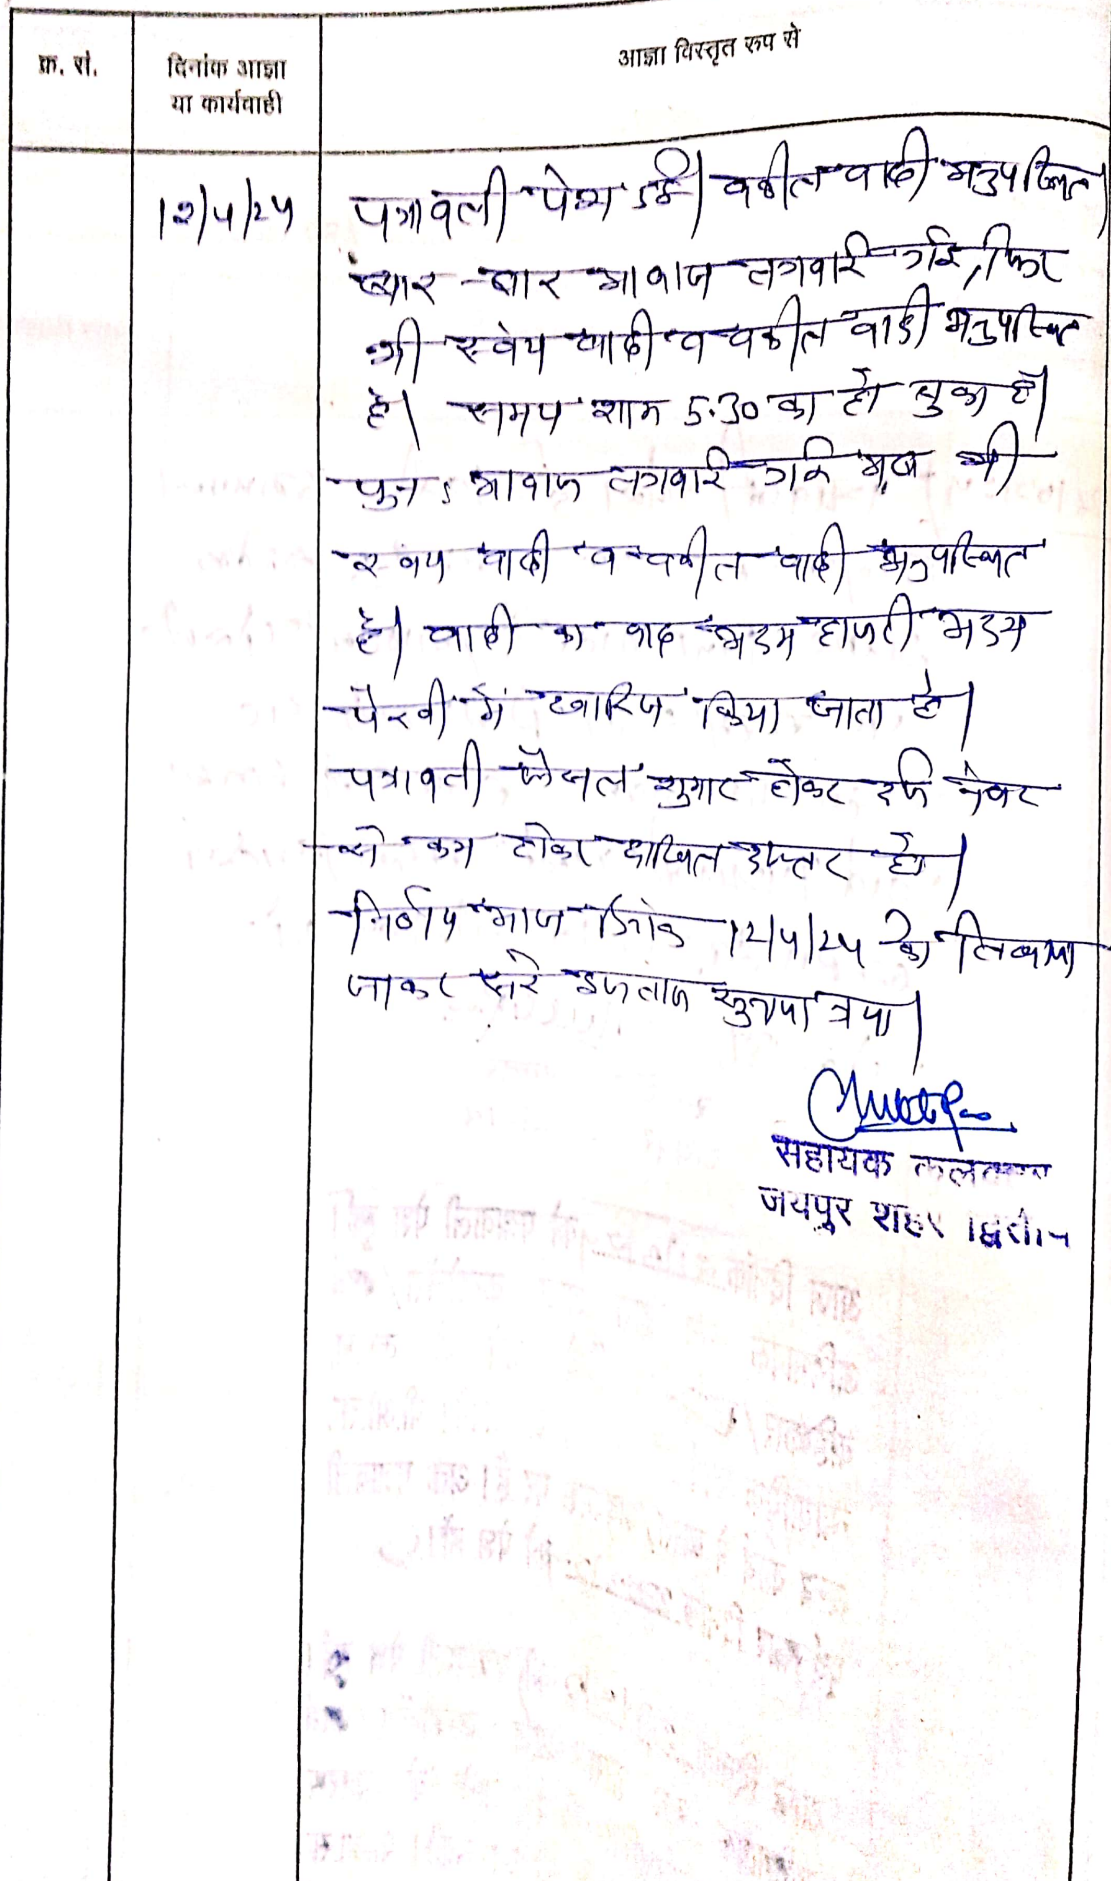 क्र. सं.
दिनांक आज्ञा
या कार्यवाही
आज्ञा विस्तृत रूप से
12/4/24
पत्रावली पेश हुई। वकील वादी अनुपस्थित।
बार-बार आवाज लगवाई गई, फिर
भी स्वयं वादी व वकील वादी अनुपस्थित
है। समय शाम 5.30 का हो चुका है।
पुनः आवाज लगवाई गई अब भी
स्वयं वादी व वकील वादी अनुपस्थित
है। वादी का वाद अदम हाजरी अदम
पैरवी में खारिज किया जाता है।
पत्रावली फैसल शुमार होकर दर्ज नंबर
से कम होकर दाखिल दफ्तर हो।
निर्णय आज दिनांक 12/4/24 को लिखाया
जाकर सरे इजलास सुनाया गया।
सहायक कलक्टर
जयपुर शहर द्वितीय